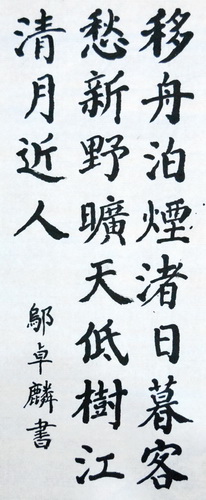 移舟泊煙渚日暮客
愁新野曠天低樹江
清月近人
鄔卓麟書